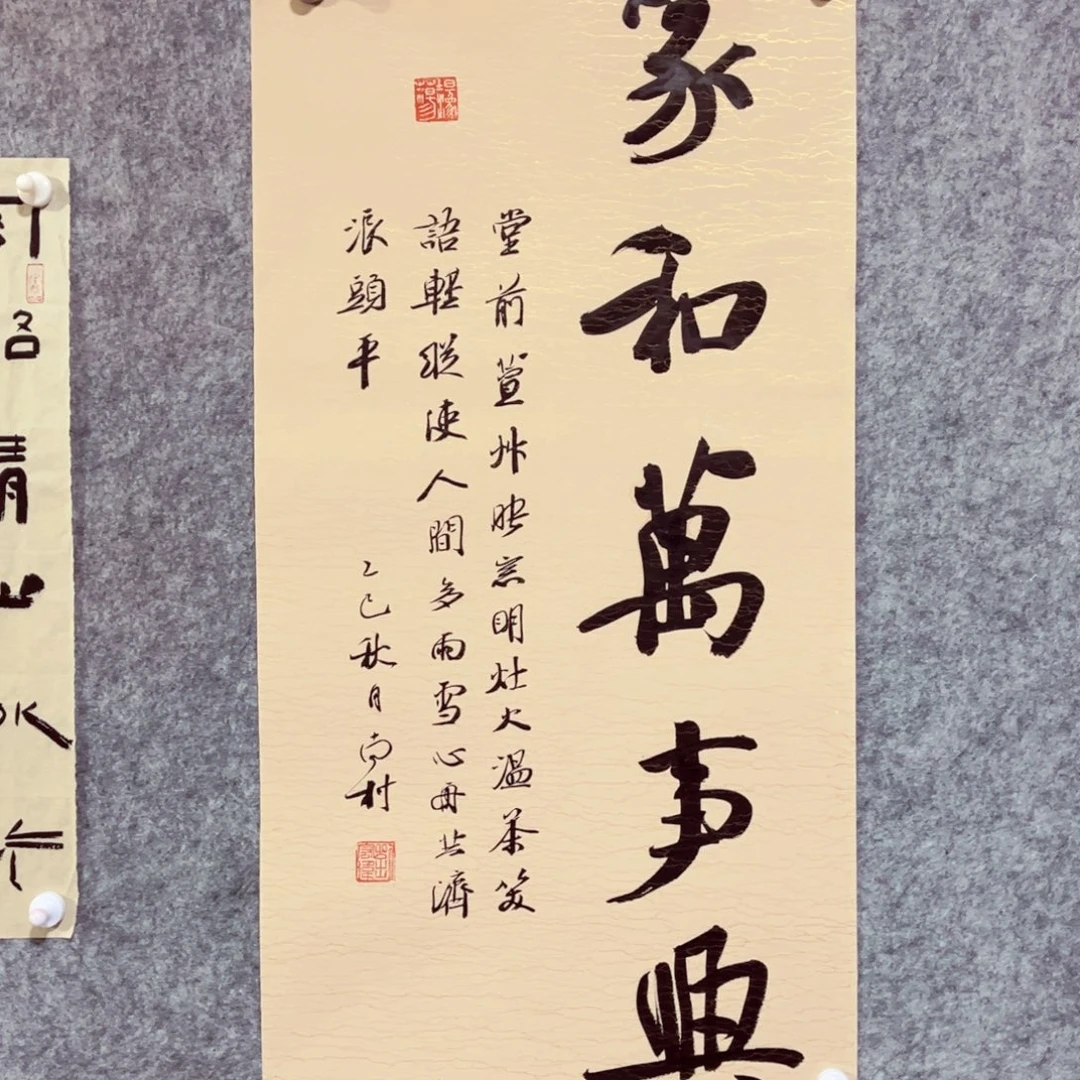 家和萬事興
堂前萱艸映窓明灶火温茶笑
語輕縱使人間多雨雪心舟共濟
浪頭平
乙巳秋月尚村
名
清
水